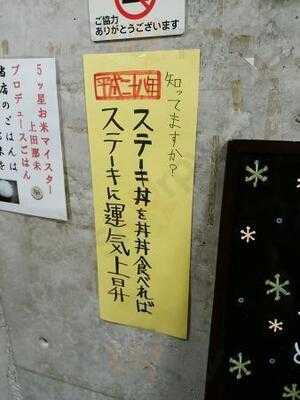 ご協力
ありがとうございます
知ってますか?
平成二十八年
ステーキ丼を丼丼食べれば
ステーキに運気上昇
5ッ星お米マイスター
上田那未
プロデュースごはん
当店のごはんは